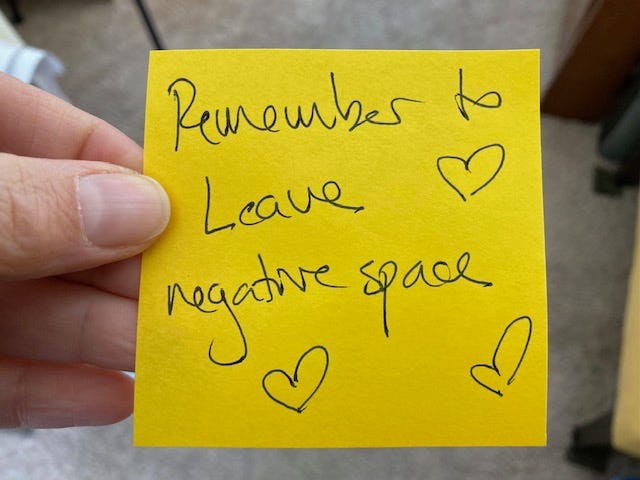 Remember to
Leave
negative space